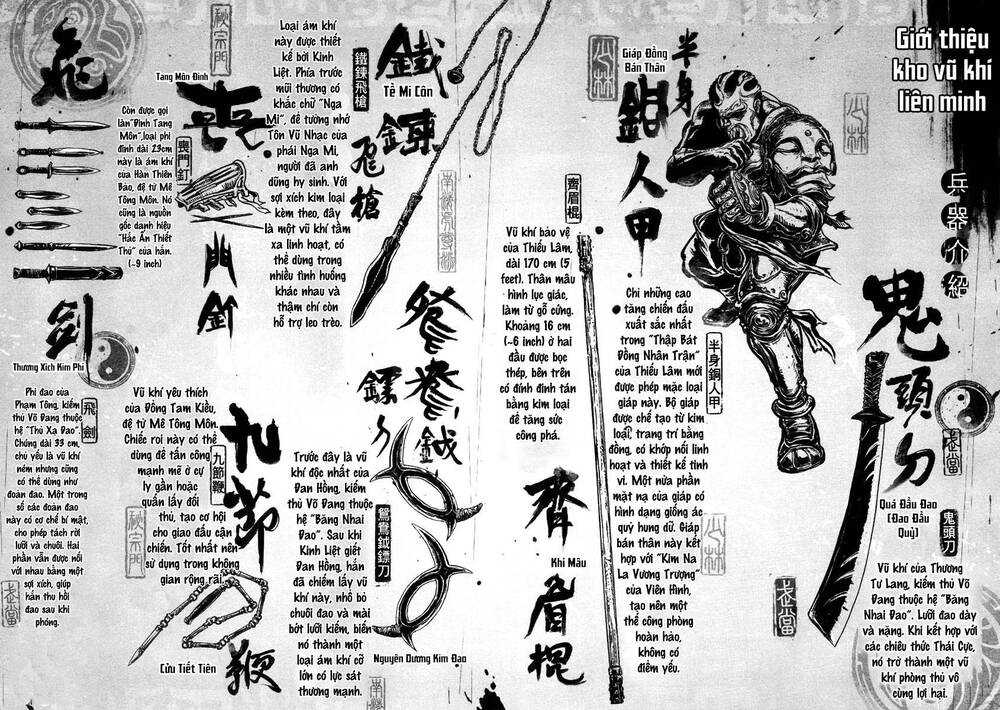 Giới thiệu
kho vũ khí
liên minh
兵器介紹
鬼頭刀
Quá Đầu Đao
(Đao Đầu
Quỷ)
鬼頭刀
武當
Vũ khí của Thương
Tư Lang, kiếm thủ Võ
Đang thuộc hệ "Băng
Nhai Đao". Lưỡi đao dày
và nặng. Khi kết hợp với
các chiêu thức Thái Cực,
nó trở thành một vũ
khí phòng thủ vô
cùng lợi hại.
武當
少林
半身
銅人甲
Giáp Đồng
Bán Thân
少林
半身銅人甲
Chỉ những cao
tăng chiến đấu
xuất sắc nhất
trong "Thập Bát
Đồng Nhân Trận"
của Thiếu Lâm mới
được phép mặc loại
giáp này. Bộ giáp
được chế tạo từ kim
loại, trang trí bằng
đồng, có khớp nối linh
hoạt và thiết kế tinh
vi. Một nửa phần
mặt nạ của giáp có
hình dạng giống ác
quỷ hung dữ. Giáp
bán thân này kết
hợp với "Kim Na
La Vương Trượng"
của Viên Hình,
tạo nên một
thể công phòng
hoàn hảo,
không có
điểm yếu.
少林
齊眉棍
Vũ khí bảo vệ
của Thiếu Lâm,
dài 170 cm (5
feet). Thân mâu
hình lục giác,
làm từ gỗ cứng.
Khoảng 16 cm
(~6 inch) ở hai
đầu được bọc
thép, bên trên
có đính đinh tán
bằng kim loại
để tăng sức
công phá.
齊眉棍
Khi Mâu
鐵鍊飛槍
Tề Mi Côn
鐵鍊飛槍
Loại ám khí
này được thiết
kế bởi Kinh
Liệt. Phía trước
mũi thương có
khắc chữ "Nga
Mi", để tưởng nhớ
Tôn Vũ Nhạc của
phái Nga Mi,
người đã anh
dũng hy sinh. Với
sợi xích kim loại
kèm theo, đây
là một vũ khí tầm
xa linh hoạt, có
thể dùng trong
nhiều tình huống
khác nhau và
thậm chí còn
hỗ trợ leo trèo.
鴛鴦鉞
鏢刀
鴛鴦鉞鏢刀
Trước đây là vũ
khí độc nhất của
Đan Hồng, kiếm
thủ Võ Đang thuộc
hệ "Băng Nhai
Đao". Sau khi
Kinh Liệt giết
Đan Hồng, hắn
đã chiếm lấy vũ
khí này, nhổ bỏ
chuôi đao và mài
bớt lưỡi kiếm, biến
nó thành một
loại ám khí cỡ
lớn có lực sát
thương mạnh.
Nguyên Dương Kim Đao
秘宗門
Tang Môn Đinh
喪門釘
喪門釘
Còn được gọi
làn "Đinh Tang
Môn", loại phi
đinh dài 23cm
này là ám khí
của Hàn Thiên
Bảo, đệ tử Mê
Tông Môn. Nó
cũng là nguồn
gốc danh hiệu
"Hắc Ấn Thiết
Thủ" của hắn.
(~9 inch)
九節鞭
九節鞭
Vũ khí yêu thích
của Đồng Tam Kiều,
đệ tử Mê Tông Môn.
Chiếc roi này có thể
dùng để tấn công
mạnh mẽ ở cự
ly gần hoặc
quấn lấy đối
thủ, tạo cơ hội
cho giao đấu cận
chiến. Tốt nhất nên
sử dụng trong không
gian rộng rãi.
秘宗門
Cửu Tiết Tiên
飛劍
Thương Xích Kim Phi
飛劍
Phi đao của
Phạm Tông, kiếm
thủ Võ Đang thuộc
hệ "Thủ Xạ Đao".
Chúng dài 33 cm,
chủ yếu là vũ khí
ném nhưng cũng
có thể dùng như
đoản đao. Một trong
số các đoản đao
này có cơ chế bí mật,
cho phép tách rời
lưỡi và chuôi. Hai
phần vẫn được nối
với nhau bằng một
sợi xích, giúp
hắn thu hồi
đao sau khi
phóng.
武當